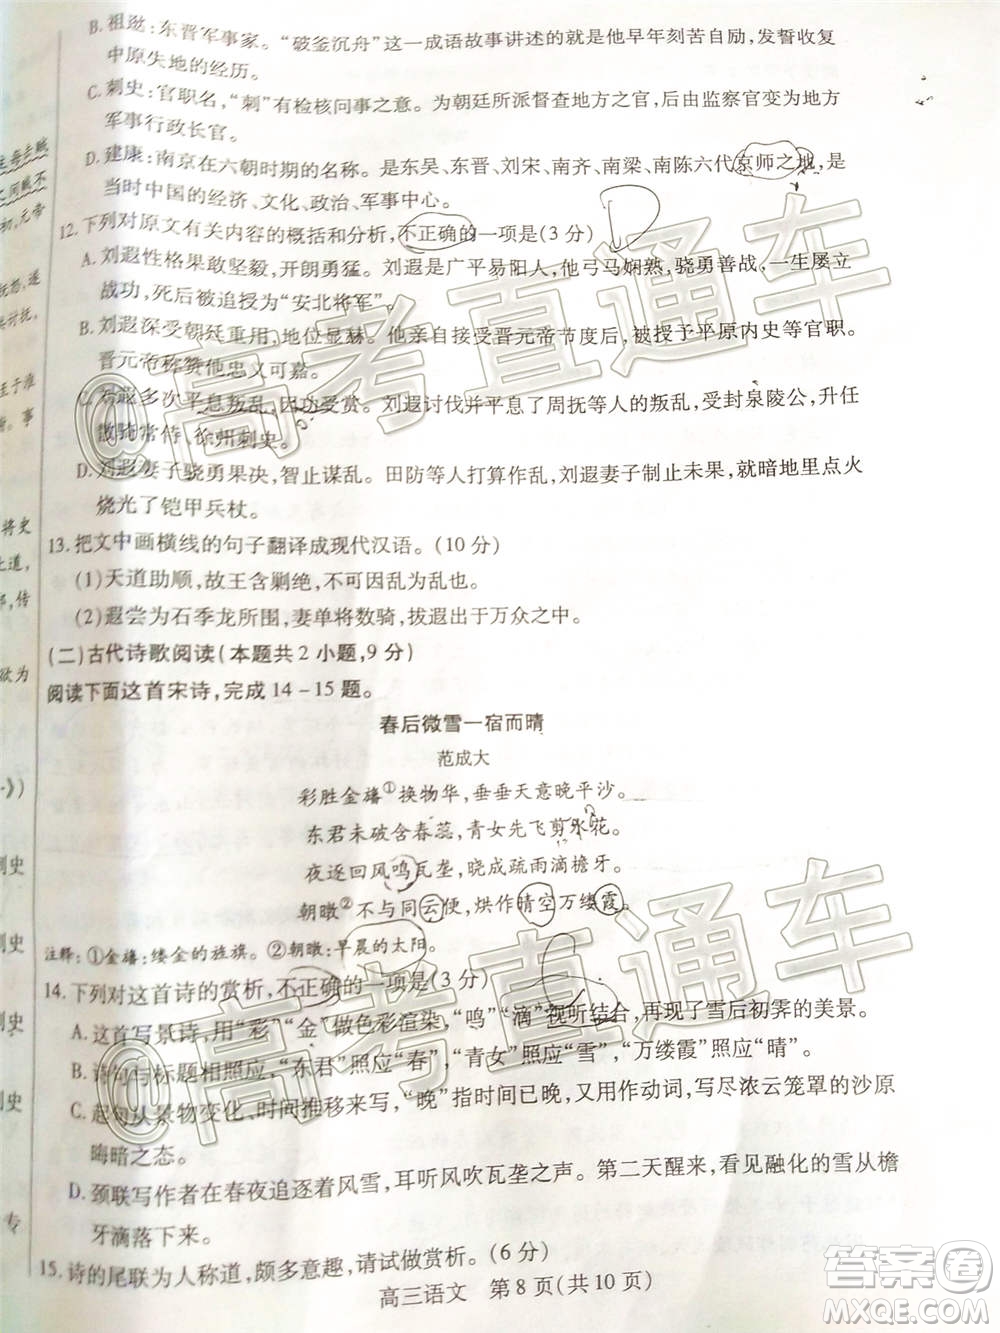 B. 祖逖:东晋军事家。“破釜沉舟”这一成语故事讲述的就是他早年刻苦自励,发誓收复
中原失地的经历。
C. 刺史:官职名,“刺”有检核问事之意。为朝廷所派督查地方之官,后由监察官变为地方
军事行政长官。
D. 建康:南京在六朝时期的名称。是东吴、东晋、刘宋、南齐、南梁、南陈六代京师之地,是
当时中国的经济、文化、政治、军事中心。
12. 下列对原文有关内容的概括和分析,不正确的一项是(3 分)
A. 刘遐性格果敢坚毅,开朗勇猛。刘遐是广平易阳人,他弓马娴熟,骁勇善战,一生屡立
战功,死后被追授为“安北将军”。
B. 刘遐深受朝廷重用,地位显赫。他亲自接受晋元帝节度后,被授予平原内史等官职。
晋元帝称赞他忠义可嘉。
C. 刘遐多次平息叛乱,因功受赏。刘遐讨伐并平息了周抚等人的叛乱,受封泉陵公,升任
散骑常侍、徐州刺史。
D. 刘遐妻子骁勇果决,智止谋乱。田防等人打算作乱,刘遐妻子制止未果,就暗地里点火
烧光了铠甲兵杖。
13. 把文中画横线的句子翻译成现代汉语。(10 分)
(1)天道助顺,故王含剿绝,不可因乱为乱也。
(2)遐尝为石季龙所围,妻单将数骑,拔遐出于万众之中。
(二)古代诗歌阅读(本题共 2 小题,9 分)
阅读下面这首宋诗,完成 14-15 题。
春后微雪一宿而晴
范成大
彩胜金旛①换物华,垂垂天意晚平沙。
东君未破含春蕊,青女先飞剪水花。
夜逐回风鸣瓦垄,晓成疏雨滴檐牙。
朝暾②不与同云便,烘作晴空万缕霞。
注释:①金旛:缕金的旌旗。②朝暾:早晨的太阳。
14. 下列对这首诗的赏析,不正确的一项是(3 分)
A. 这首写景诗,用“彩”“金”做色彩渲染,“鸣”“滴”视听结合,再现了雪后初霁的美景。
B. 诗句与标题相照应,“东君”照应“春”,“青女”照应“雪”,“万缕霞”照应“晴”。
C. 起句从景物变化、时间推移来写,“晚”指时间已晚,又用作动词,写尽浓云笼罩的沙原
晦暗之态。
D. 颈联写作者在春夜追逐着风雪,耳听风吹瓦垄之声。第二天醒来,看见融化的雪从檐
牙滴落下来。
15. 诗的尾联为人称道,颇多意趣,请试做赏析。(6 分)
高三语文 第 8 页(共 10 页)
@高考直通车
@高考直通车
答案圈
MXQE.COM